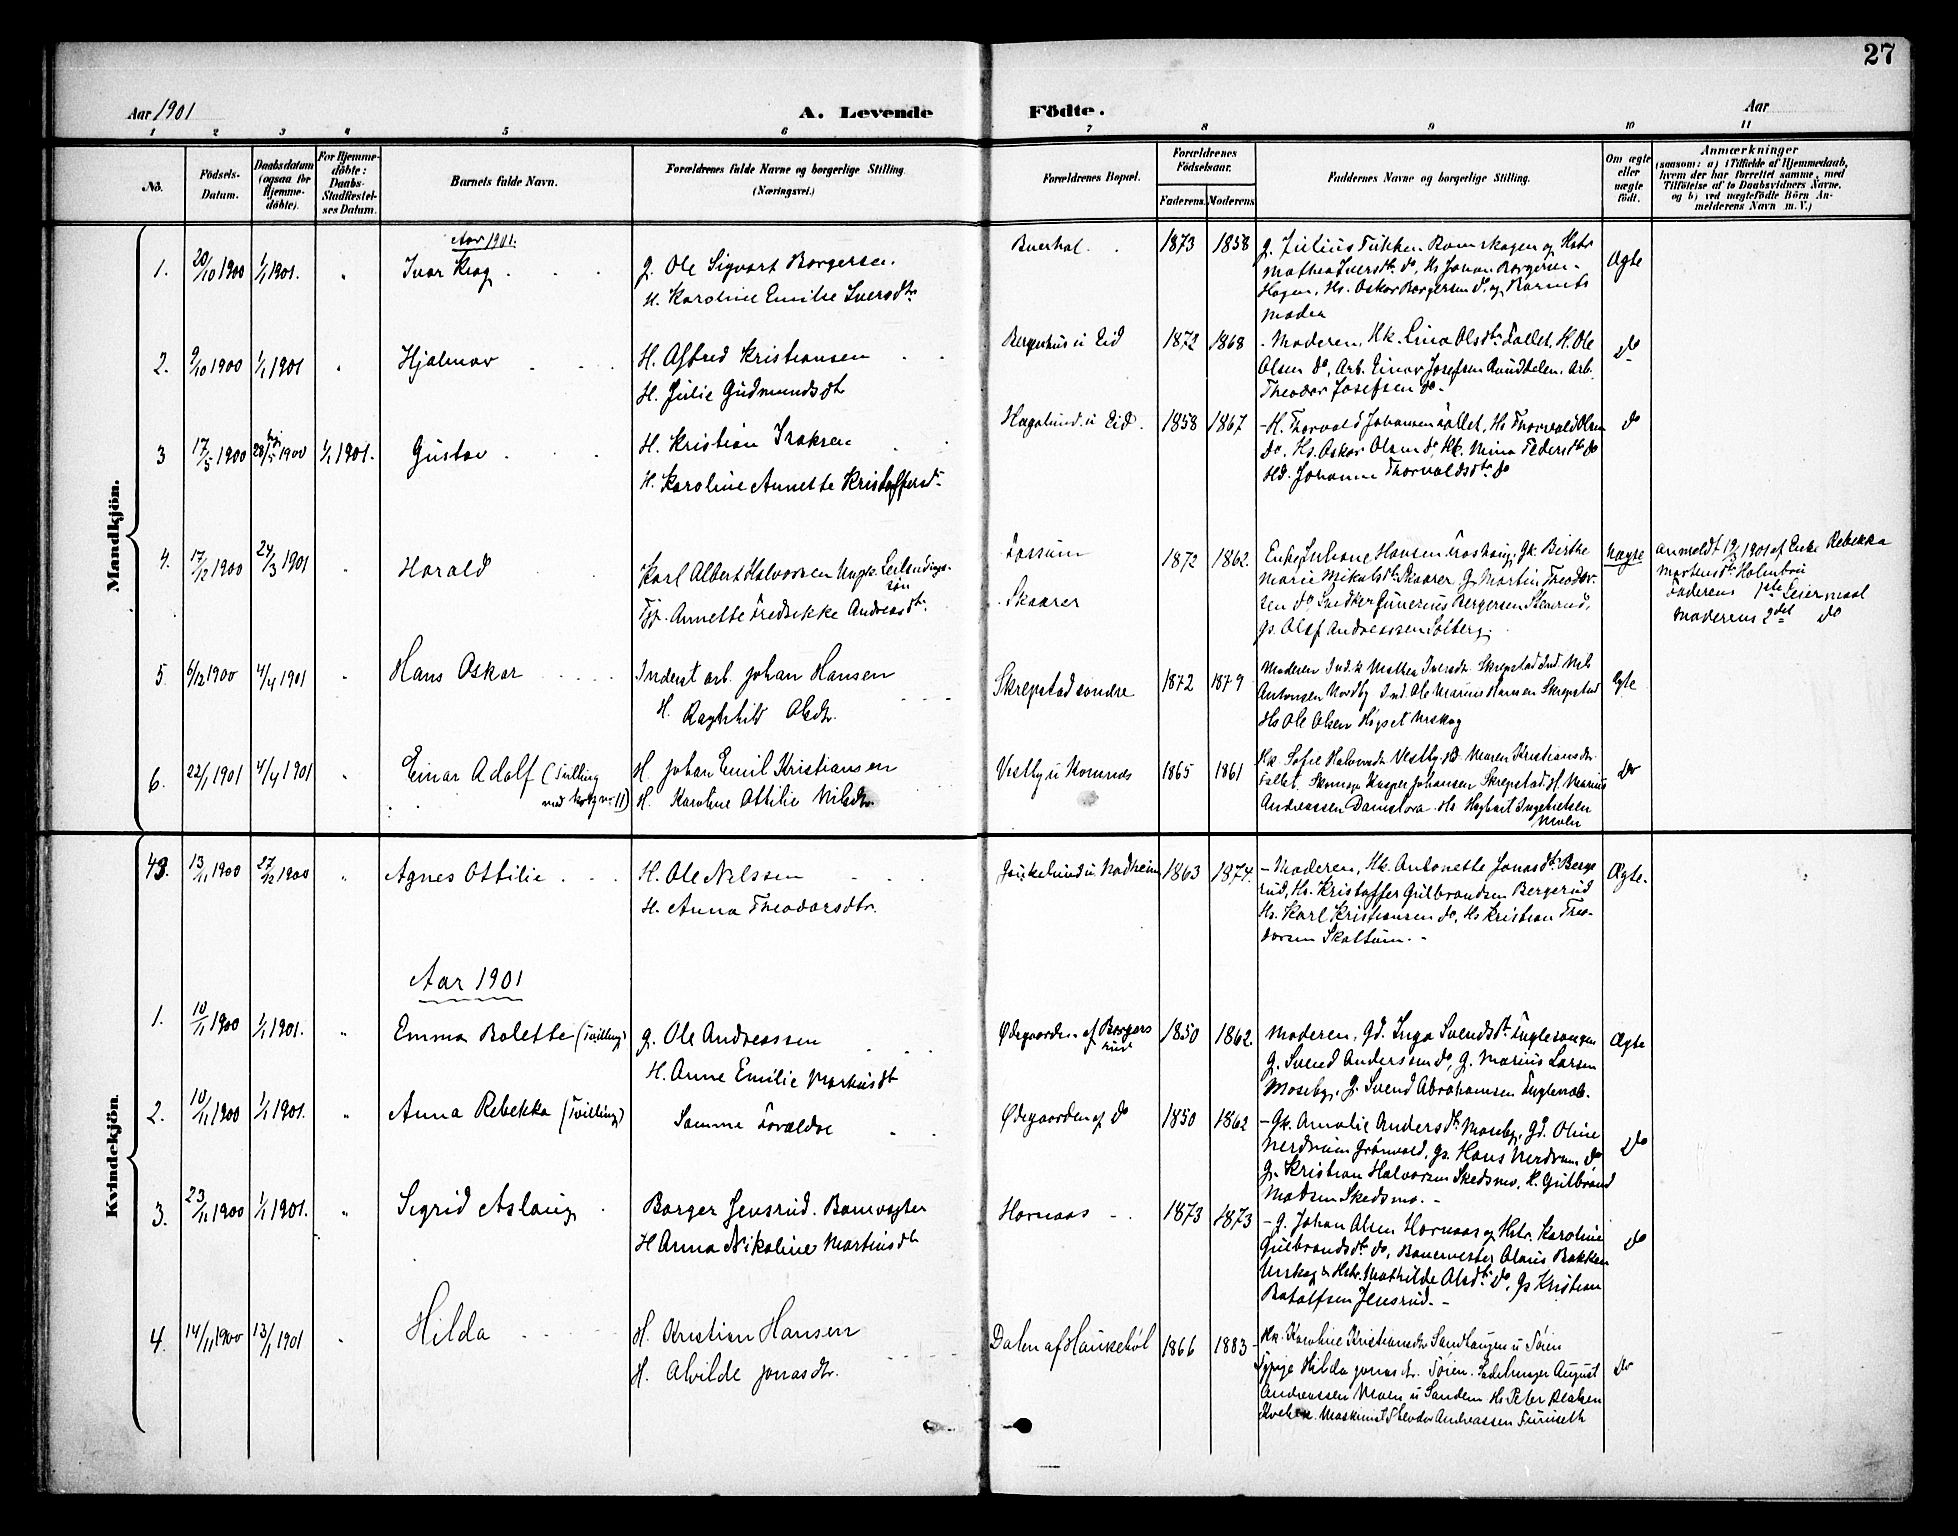 27
Aar 1901
A. Levende
Födte.
Aar
1 2 3 4 5 6 7 8 9 10 11
No.
Födsels-
Datum.
Daabsdatum
(ogsaa for
Hjemme-
döbte).
For Hjemme-
döbte:
Daabs-
Stadfæstel-
ses Datum.
Barnets fulde Navn.
Forældrenes fulde Navne og borgerlige Stilling
(Næringsvei.)
Forældrenes Bopæl.
Forældrenes
Födselsaar.
Faderens. Moderens.
Faddernes Navne og borgerlige Stilling.
Om ægte
eller
uægte
födt.
Anmærkninger
(saasom: a) i Tilfælde af Hjemmedaab,
hvem der har forrettet samme, med
Tilföielse af to Daabsvidners Navne,
og b) ved uægtefödte Börn An-
melderens Navn m. V.)
Mandkjön.
Aar 1901.
1. 20/10 1900 1/1 1901. " Ivar Krog
G. Ole Sigvart Borgersen.
H. Karoline Emilie Iversdtr
1873 1858
Mathea Iversdtr. do, Hs Johan Borgersen
Hagen, Hs. Oskar Borgersen do. og Barnets
Moder
Ægte
2. 9/10 1900 1/1 1901 " Hjalmar
H. Alfred Kristiansen
H. Julie Gudmundsdtr
Bergerhus u Eid 1872 1868
Moderen, Hk. Lina Olsdtr. Fallet, H. Ole
Olsen do, Arb. Einar Josefsen Arb.
Theodor Josefsen do.
do
3 17/5 1900 28/5 1900 1/1 1901. Gustav
H. Kristian Isaksen
H. Karoline Annette Kristoffersd.
Hagalund u Eid. 1858 1867
H. Thorvald Johansen Fallet, Hs Thorvald Olsen
do, Hs. Oskar Olsen do, Hk. Mina Pedersdtr. do
Hd. Johanne Thorvaldsdtr. do
do
4. 17/12 1900 24/3 1901 Harald
Karl Albert Halvorsen Ungk.
Tj. Annette Fredrikke Andreasdtr.
Fossum
Skaarer
1872 1862.
Enke Juliane Hansen Gk. Birthe
Marie Mikalsdtr. Skaarer, G. Martin Theodor-
sen do Snedker Gunerius Bergersen
Gs. Olaf Andreassen Solberg.
Uægte
anmeldt 19/3 1901 af Enke Rebekka
Martinsdtr. Holmbro
Faderens 1ste Leiermaal
Moderens 2det do
5. 6/12 1900 4/4 1901 " Hans Oskar
Inderst arb. Johan Hansen
H. Ragnhild Olsdtr.
Skrepstad søndre 1872 1879
Moderen Ind.k Mathea Iversdtr. Skrepstad Ind. Nils
Antonsen Nordby Ind. Ole Marius Hansen Skrepstad
Hs Ole Olsen Urskog
Ægte
6. 22/1 1901 4/4 1901 " Einar Adolf (Tvilling
med
H. Johan Emil Kristiansen
H. Karoline Ottilie Nilsdtr.
Vestby u Komnes 1865 1861
Hk. Sofie Halvorsdtr Vestby Hd Maren Kristiansdtr.
Fallet. Kasper Johansen Skrepstad. H. Marius
Andreassen Damstora Hs Hagbart Ingebretsen
Moen
do
Kvindekjön.
43. 13/11 1900 27/12 1900 " Agnes Ottilie
H. Ole Nilssen
H. Anna Theodorsdtr.
1863 1874.
Moderen, Hk. Antonette Jonasdtr. Berge-
rud, Hs. Kristoffer Gulbrandsen Bergerud
Hs. Karl Kristiansen do, Hs Kristian Theo-
dorsen Skattum.
Ægte.
Aar 1901
1. 10/11 1900 1/1 1901. " Emma Bolette (Tvilling)
G. Ole Andreassen
H. Anne Emilie Markusdtr
Ødegaarden af Borgers
rud
1850 1862.
Moderen, Gd. Inga Svendsdtr.
G. Svend Anderssen do, G. Marius Larsen
Moseby, G. Svend Abrahamsen
Ægte
2. 10/11 1900 1/1 1901. " Anna Rebekka (Tvilling)
Samme Forældre
Ødegaarden af do 1850 1862
Gk. Amalie Andersdtr. Moseby, Gd. Oline
Nerdrum Grønvold, Gs. Hans Nerdrum do
G. Kristian Halvorsen Skedsmo, H. Gulbrand
Madsen Skedsmo.
do
3. 23/11 1900 1/1 1901. " Sigrid Aslaug
Borger Jensrud. Banevogter
H Anna Nikoline Martinsdtr
Hornaas 1873 1873
G. Johan Olsen Hornaas og Hstr. Karoline
Gulbrandsdtr. do, Banevogter Olaus Bakken
Urskog & Hstr. Mathilde Olsdtr. do, Gs Kristian
Botolfsen Jensrud.
do
4. 14/11 1900 13/1 1901 " Hilda
H. Kristian Hansen
H. Alvilde Jonasdtr.
Dalen af Haukebøl 1866 1883
Hk. Karoline Kristiansdtr Sandhaugen u Tøien
Hilda Jonasdtr. Tøien. August
Andreassen Moen u Sanden Hs Peter
Maskinist Theodor Andreassen Furuseth
do